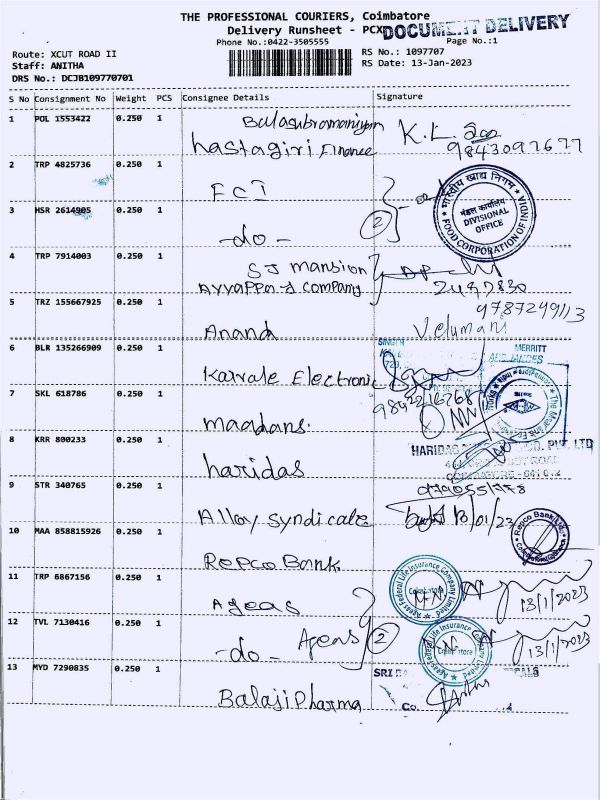 THE PROFESSIONAL COURIERS, Coimbatore
Delivery Runsheet - PCX
DOCUMENT DELIVERY
Phone No.:0422-3505555
Page No.:1
Route: XCUT ROAD II
RS No.: 1097707
Staff: ANITHA
RS Date: 13-Jan-2023
DRS No.: DCJB109770701
S No Consignment No Weight PCS Consignee Details Signature
1 POL 1553422 0.250 1 Balasubramaniyam
hastagiri Finance
K.L.
9843097677
2 TRP 4825736 0.250 1 FCI
भारतीय खाद्य निगम
मंडल कार्यालय
DIVISIONAL
OFFICE
FOOD CORPORATION OF INDIA
3 HSR 2614905 0.250 1 -do-
2
4 TRP 7914003 0.250 1 SJ mansion
Ayyappa & company
2497830
5 TRZ 155667925 0.250 1 Anand
9787299113
Velumani
6 BLR 135266909 0.250 1 Karrale Electronic
MERRITT
7 SKL 618786 0.250 1 maadans.
8 KRR 800233 0.250 1 haridas
HARIDAS
PVT LTD
9 STR 340765 0.250 1 Alloy syndicate
13/01/23
10 MAA 858815926 0.250 1 Repco Bank
Repco Bank Ltd.
11 TRP 6867156 0.250 1 Ageas
Ageas Federal Life Insurance Company Limited
Coimbatore
13/1/2023
12 TVL 7130416 0.250 1 -do- Ageas
2
Ageas Federal Life Insurance Company Limited
Coimbatore
13/1/2023
13 MYD 7290835 0.250 1 Balaji Pharma
SRI